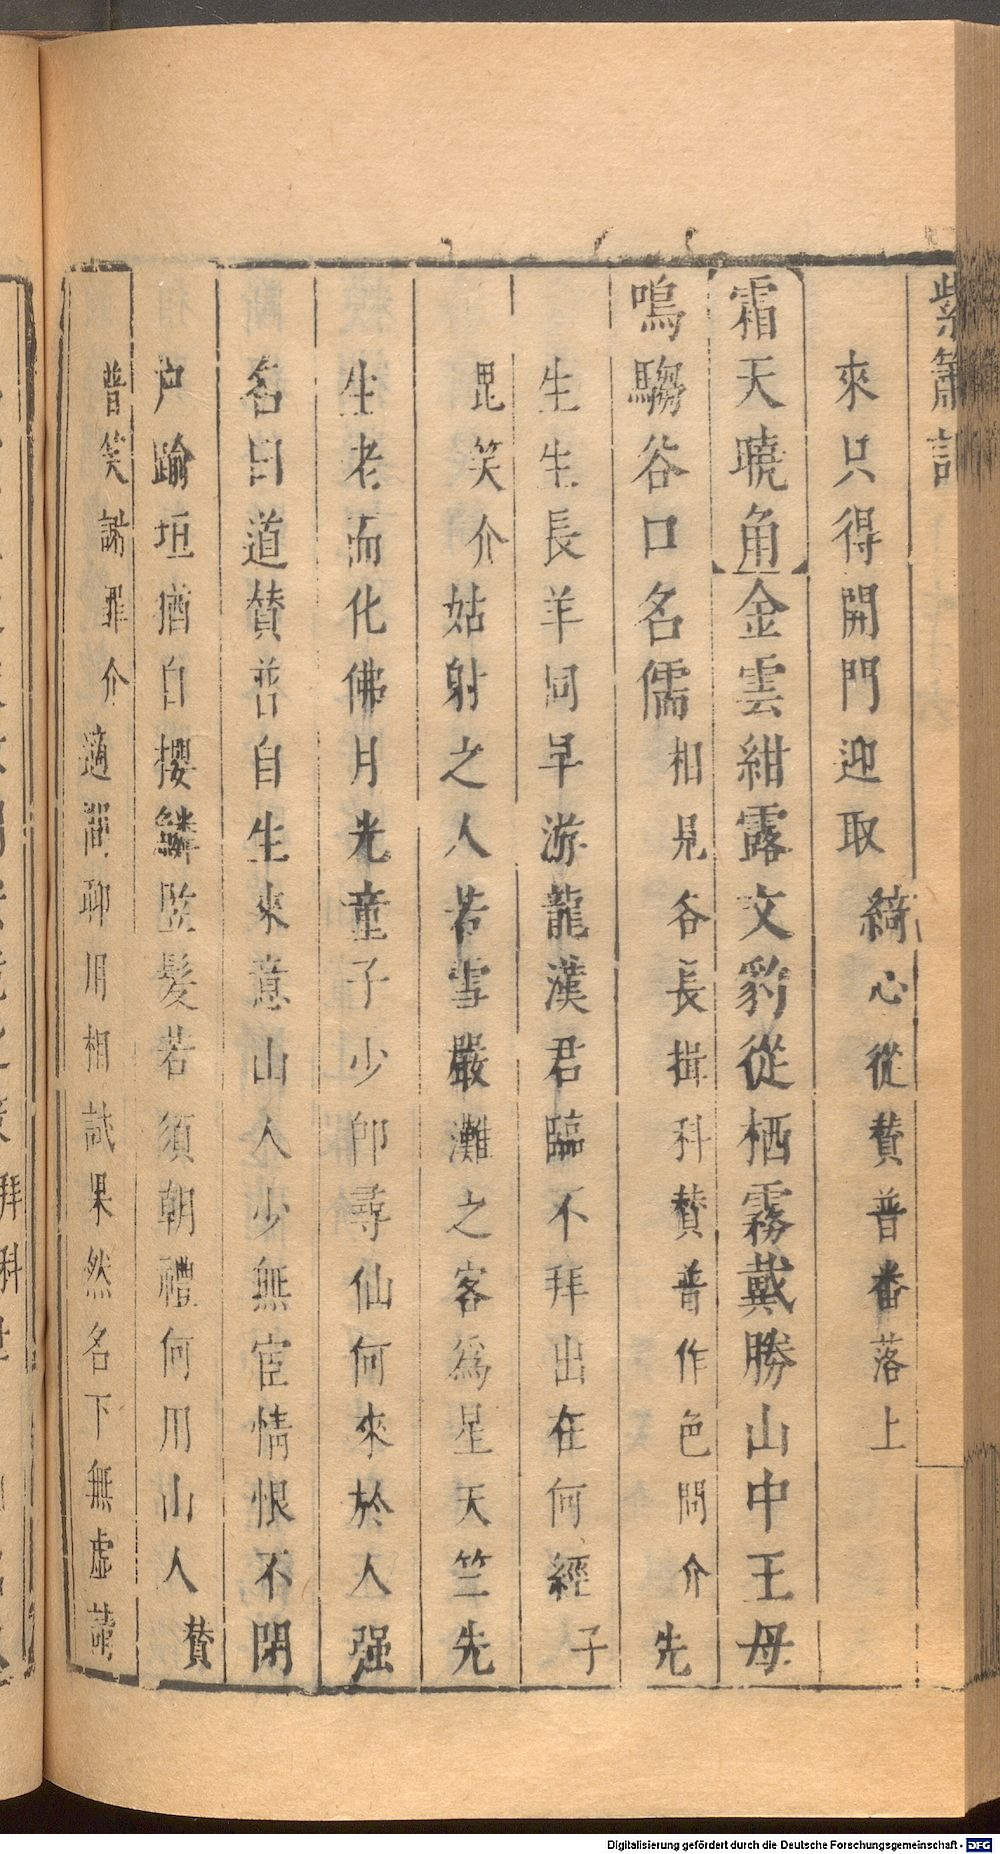 紫簫記
來只得開門迎取綺心從贊普番落上
霜天曉角金雲紺露文豹從栖霧戴勝山中王母
鳴騶谷口名儒相見各長揖科贊普作色問介先
生生長羊同早游龍漢君臨不拜出在何經子
毘笑介姑射之人若雪嚴灘之客爲星天竺先
生老而化佛月光童子少卽尋仙何來於人强
名曰道贊普自生來意山人少無宦情恨不閉
户踰垣猶自攖鱗監髮若須朝禮何用山人贊
普笑謝罪介適間聊用相試果然名下無虛
拜科
Digitalisierung gefördert durch die Deutsche Forschungsgemeinschaft - DFG